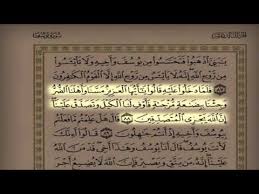 يَٰبَنِىَّ ٱذْهَبُوا۟ فَتَحَسَّسُوا۟ مِن يُوسُفَ وَأَخِيهِ وَلَا تَا۟يْـَٔسُوا۟
مِن رَّوْحِ ٱللَّهِ إِنَّهُۥ لَا يَا۟يْـَٔسُ مِن رَّوْحِ ٱللَّهِ إِلَّا ٱلْقَوْمُ ٱلْكَٰفِرُونَ
٨٧ فَلَمَّا دَخَلُوا۟ عَلَيْهِ قَالُوا۟ يَٰٓأَيُّهَا ٱلْعَزِيزُ مَسَّنَا وَأَهْلَنَا ٱلضُّرُّ
وَجِئْنَا بِبِضَٰعَةٍ مُّزْجَىٰةٍ فَأَوْفِ لَنَا ٱلْكَيْلَ وَتَصَدَّقْ عَلَيْنَآ
إِنَّ ٱللَّهَ يَجْزِى ٱلْمُتَصَدِّقِينَ ٨٨ قَالَ هَلْ عَلِمْتُم مَّا فَعَلْتُم
بِيُوسُفَ وَأَخِيهِ إِذْ أَنتُمْ جَٰهِلُونَ ٨٩ قَالُوٓا۟ أَءِنَّكَ
لَأَنتَ يُوسُفُ قَالَ أَنَا۠ يُوسُفُ وَهَٰذَآ أَخِى قَدْ مَنَّ ٱللَّهُ
عَلَيْنَآ إِنَّهُۥ مَن يَتَّقِ وَيَصْبِرْ فَإِنَّ ٱللَّهَ لَا يُضِيعُ أَجْرَ